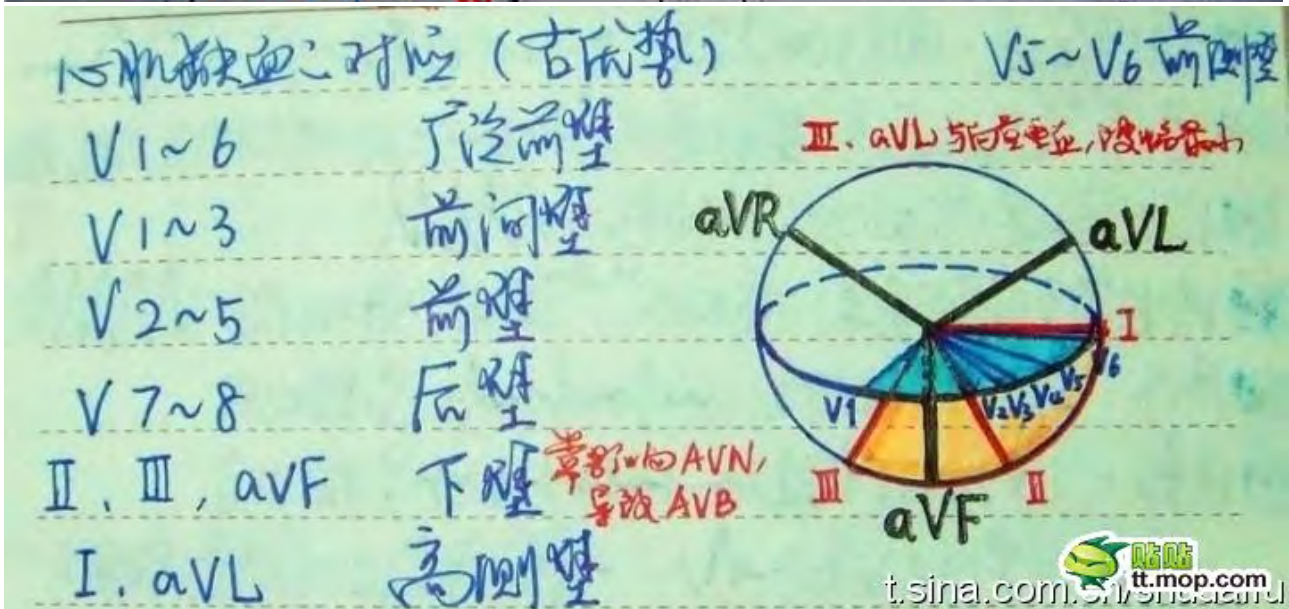 心肌缺血之对应（右优势）
V5~V6 前侧壁
V1~6 广泛前壁
V1~3 前间壁
V2~5 前壁
V7~8 后壁
II、III, aVF 下壁 常影响AVN, 导致AVB
I、aVL 高侧壁
III、aVL
aVR
aVL
I
V1 V2 V3 V4 V5 V6
III
aVF
II
贴贴
tt.mop.com
t.sina.com.cn/